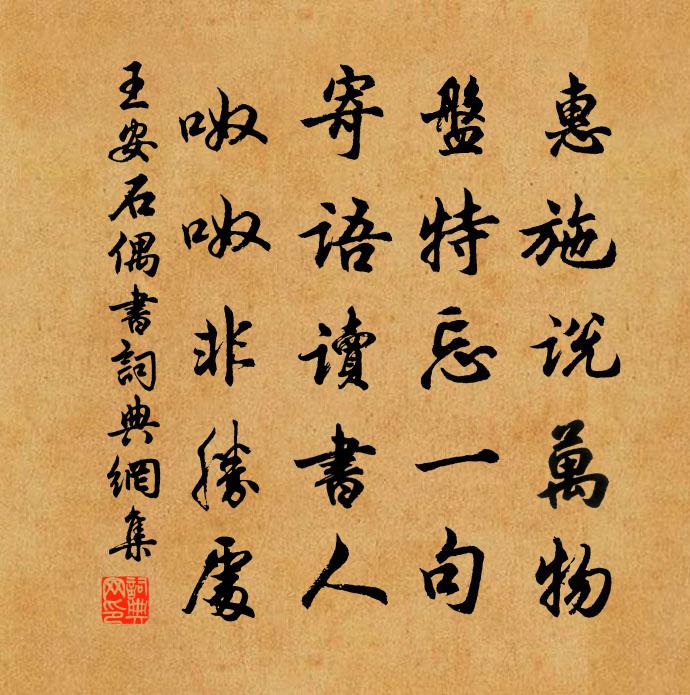 惠施說萬物
盤特忘一句
寄語讀書人
呶呶非勝處
王安石偶書詞典網集
詞典网印